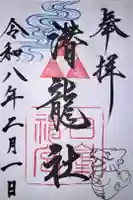 奉拝
潜龍社
令和八年二月一日